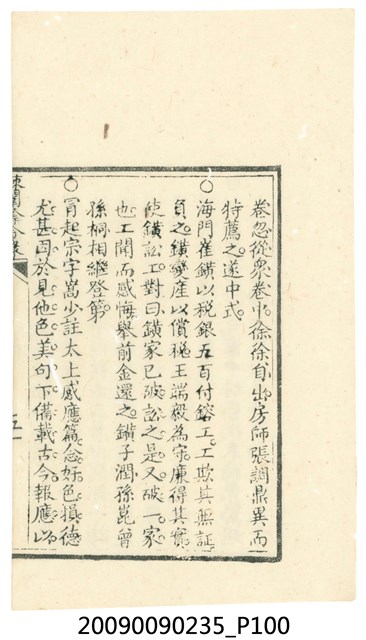 卷忽從眾卷中徐徐自出房師張調鼎異而
特薦之遂中式
○海門崔鐄以稅銀五百付鎔工工欺其無証
負之鐄變產以償稅王端毅為守廉得其實
使鐄訟工對曰鐄家已破訟之是又破一家
也工聞而感悔舉前金還之鐄子潤孫崑曾
孫桐相繼登第
○冒起宗字嵩少註太上感應篇念好色損德
尤甚因於見他色美句下備載古今報應以
五
20090090235_P100